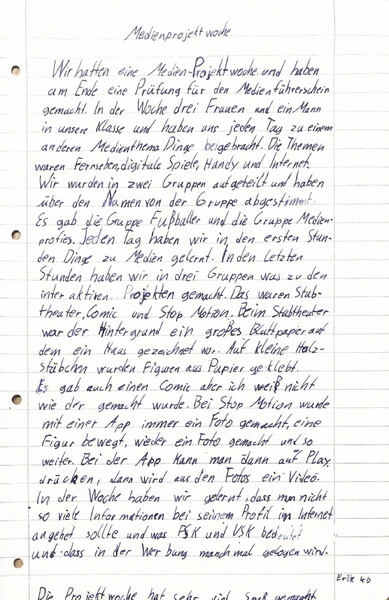 Medienprojektwoche
Wir hatten eine Medien-Projektwoche und haben
am Ende eine Prüfung für den Medienführerschein
gemacht. In der Woche drei Frauen und ein Mann
in unsere Klasse und haben uns jeden Tag zu einem
anderen Medienthema Dinge beigebracht. Die Themen
waren Fernsehen, digitale Spiele, Handy und Internet.
Wir wurden in zwei Gruppen aufgeteilt und haben
über den Namen von der Gruppe abgestimmt.
Es gab die Gruppe Fußballer und die Gruppe Medien-
profies. Jeden Tag haben wir in den ersten Stun-
den Dinge zu Medien gelernt. In den letzten
Stunden haben wir in drei Gruppen was zu den
interaktiven Projekten gemacht. Das waren Stab-
theater, Comic und Stop Motion. Beim Stabtheater
war der Hintergrund ein großes Blattpapier auf
dem ein Haus gezeichnet war. Auf kleine Holz-
stäbchen wurden Figuren aus Papier geklebt.
Es gab auch einen Comic aber ich weiß nicht
wie der gemacht wurde. Bei Stop Motion wurde
mit einer App immer ein Foto gemacht, eine
Figur bewegt, wieder ein Foto gemacht und so
weiter. Bei der App kann man dann auf Play
drücken, dann wird aus den Fotos ein Video.
In der Woche haben wir gelernt, dass man nicht
so viele Informationen bei seinem Profil im Internet
angeben sollte und was FSK und USK bedeutet
und dass in der Werbung manchmal gelogen wird.
Erik 4b
Die Projektwoche hat sehr viel Spaß gemacht